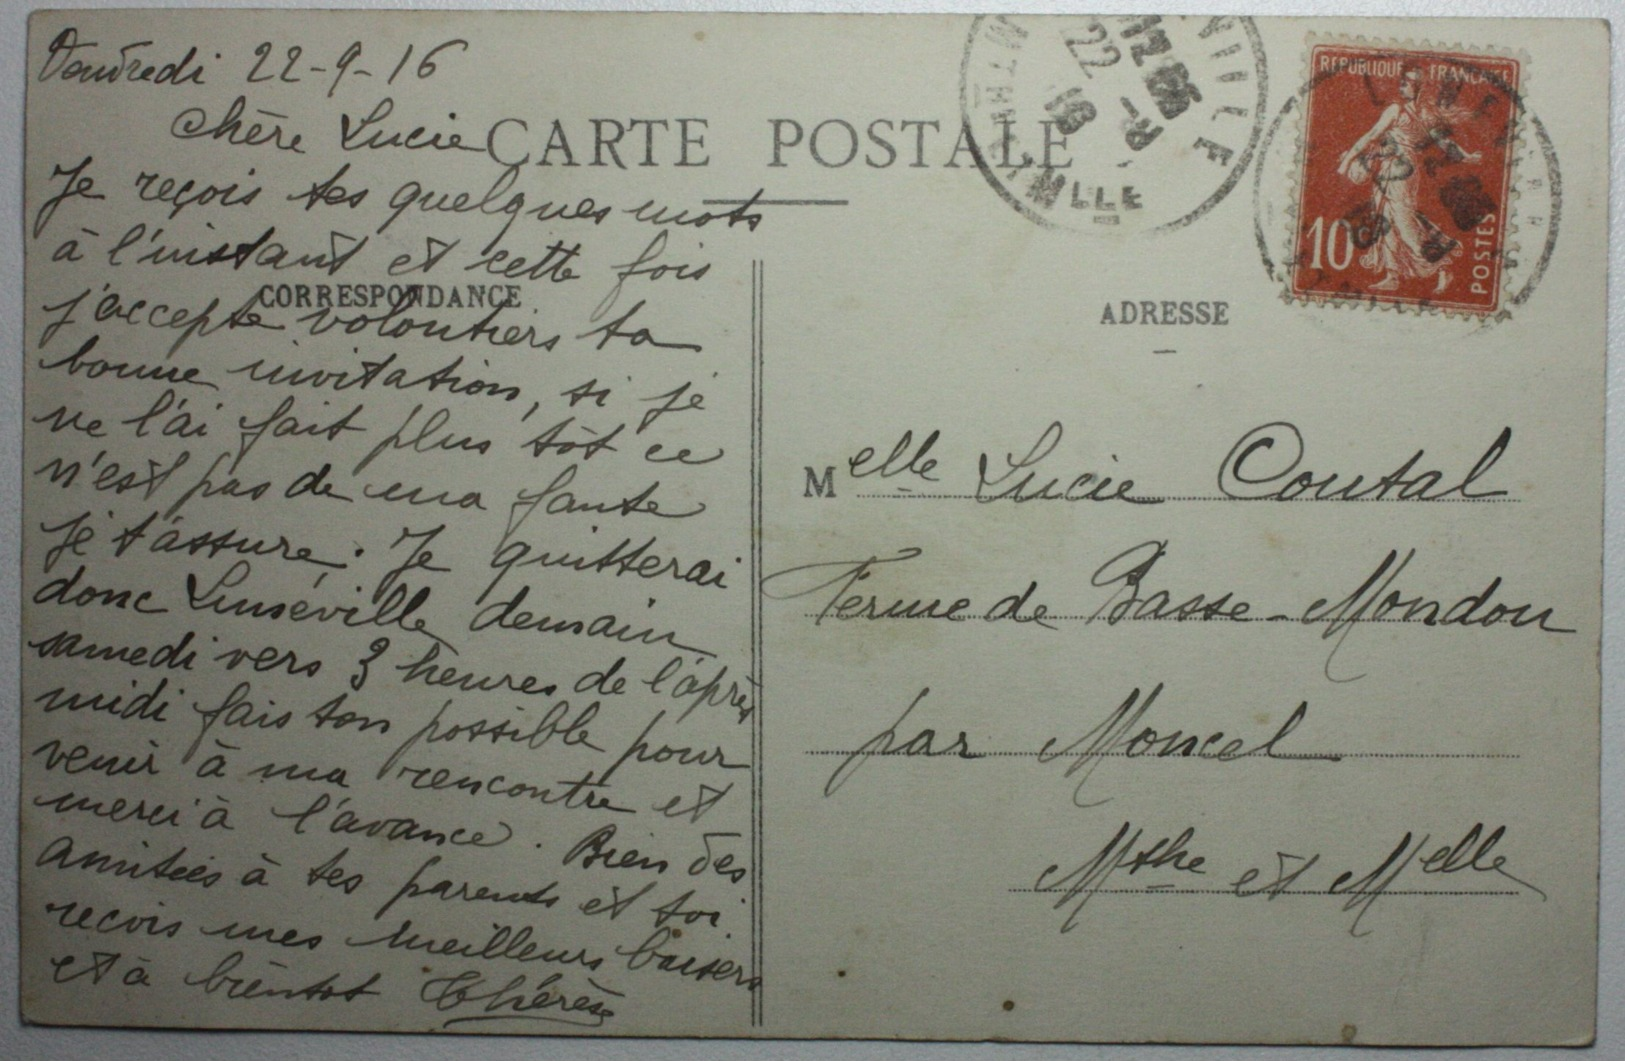 Vendredi 22-9-16
chère Lucie
Je reçois tes quelques mots
à l'instant et cette fois
j'accepte volontiers ta
bonne invitation, si je
ne l'ai fait plus tôt ce
n'est pas de ma faute
je t'assure. Je quitterai
donc Lunéville demain
samedi vers 3 heures de l'après
midi fais ton possible pour
venir à ma rencontre et
merci à l'avance. Bien des
amitiés à tes parents et toi
recois mes meilleurs baisers
et à bientot Thérèse
CARTE POSTALE
CORRESPONDANCE
22
16
REPUBLIQUE FRANÇAISE
10
POSTES
ADRESSE
Melle Lucie Coutal
Ferme de Basse-Mondon
par Moncel
Mthe et Melle